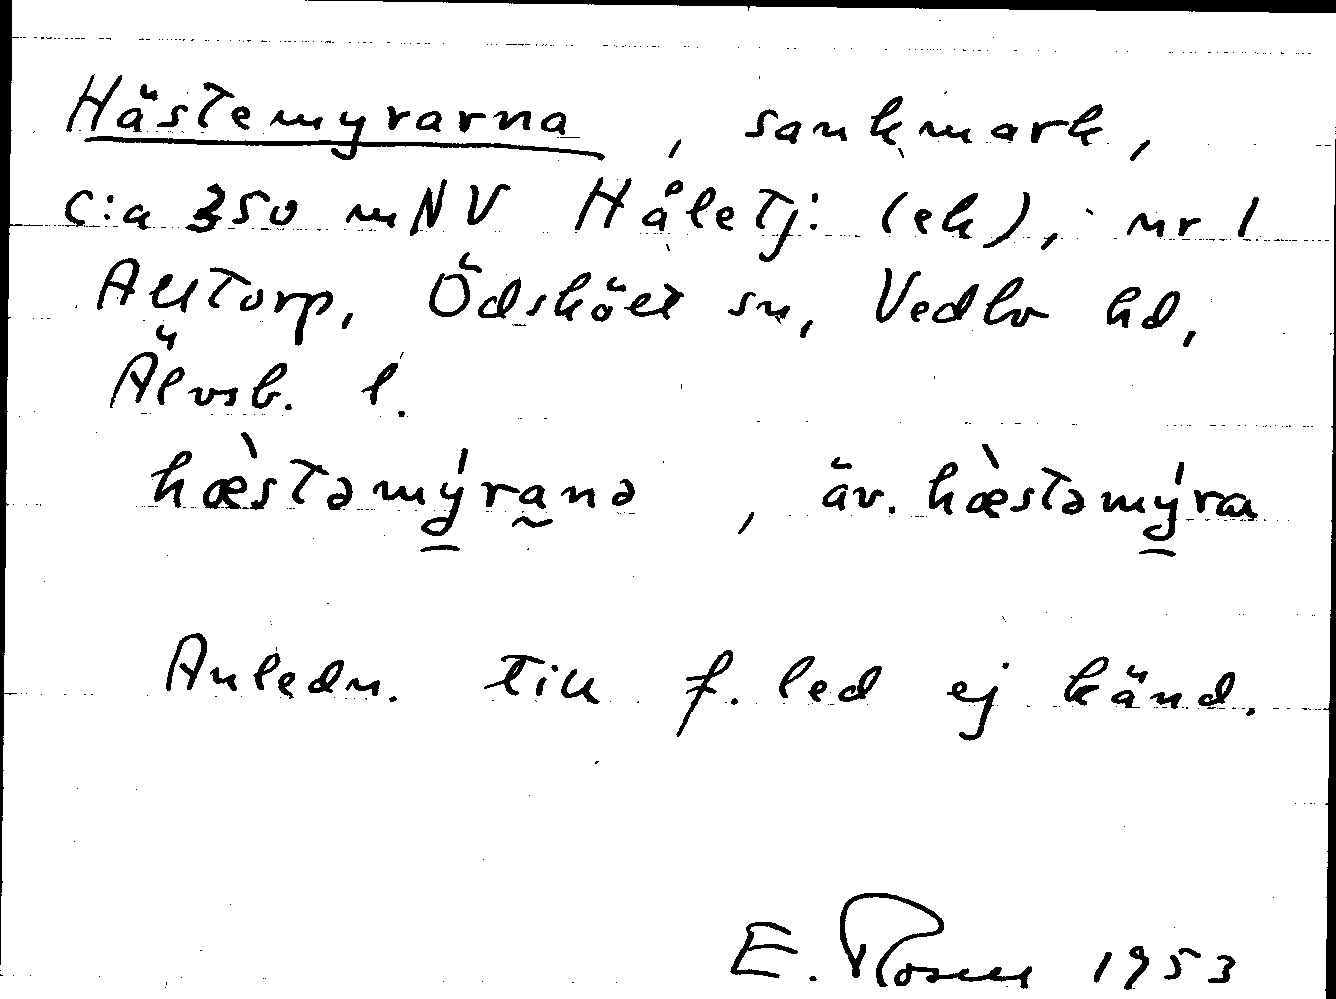 Hästemyrarna, sankmark,
c:a 350 m NV Håletj: (ek), nr 1
Alltorp, Ödsköět sn, Vedbo hd,
Älvsb. l.
hæ̀stəmýranə, äv. hæ̀stəmýra
Anledn. till f. led ej känd.
E. Rosell 1953